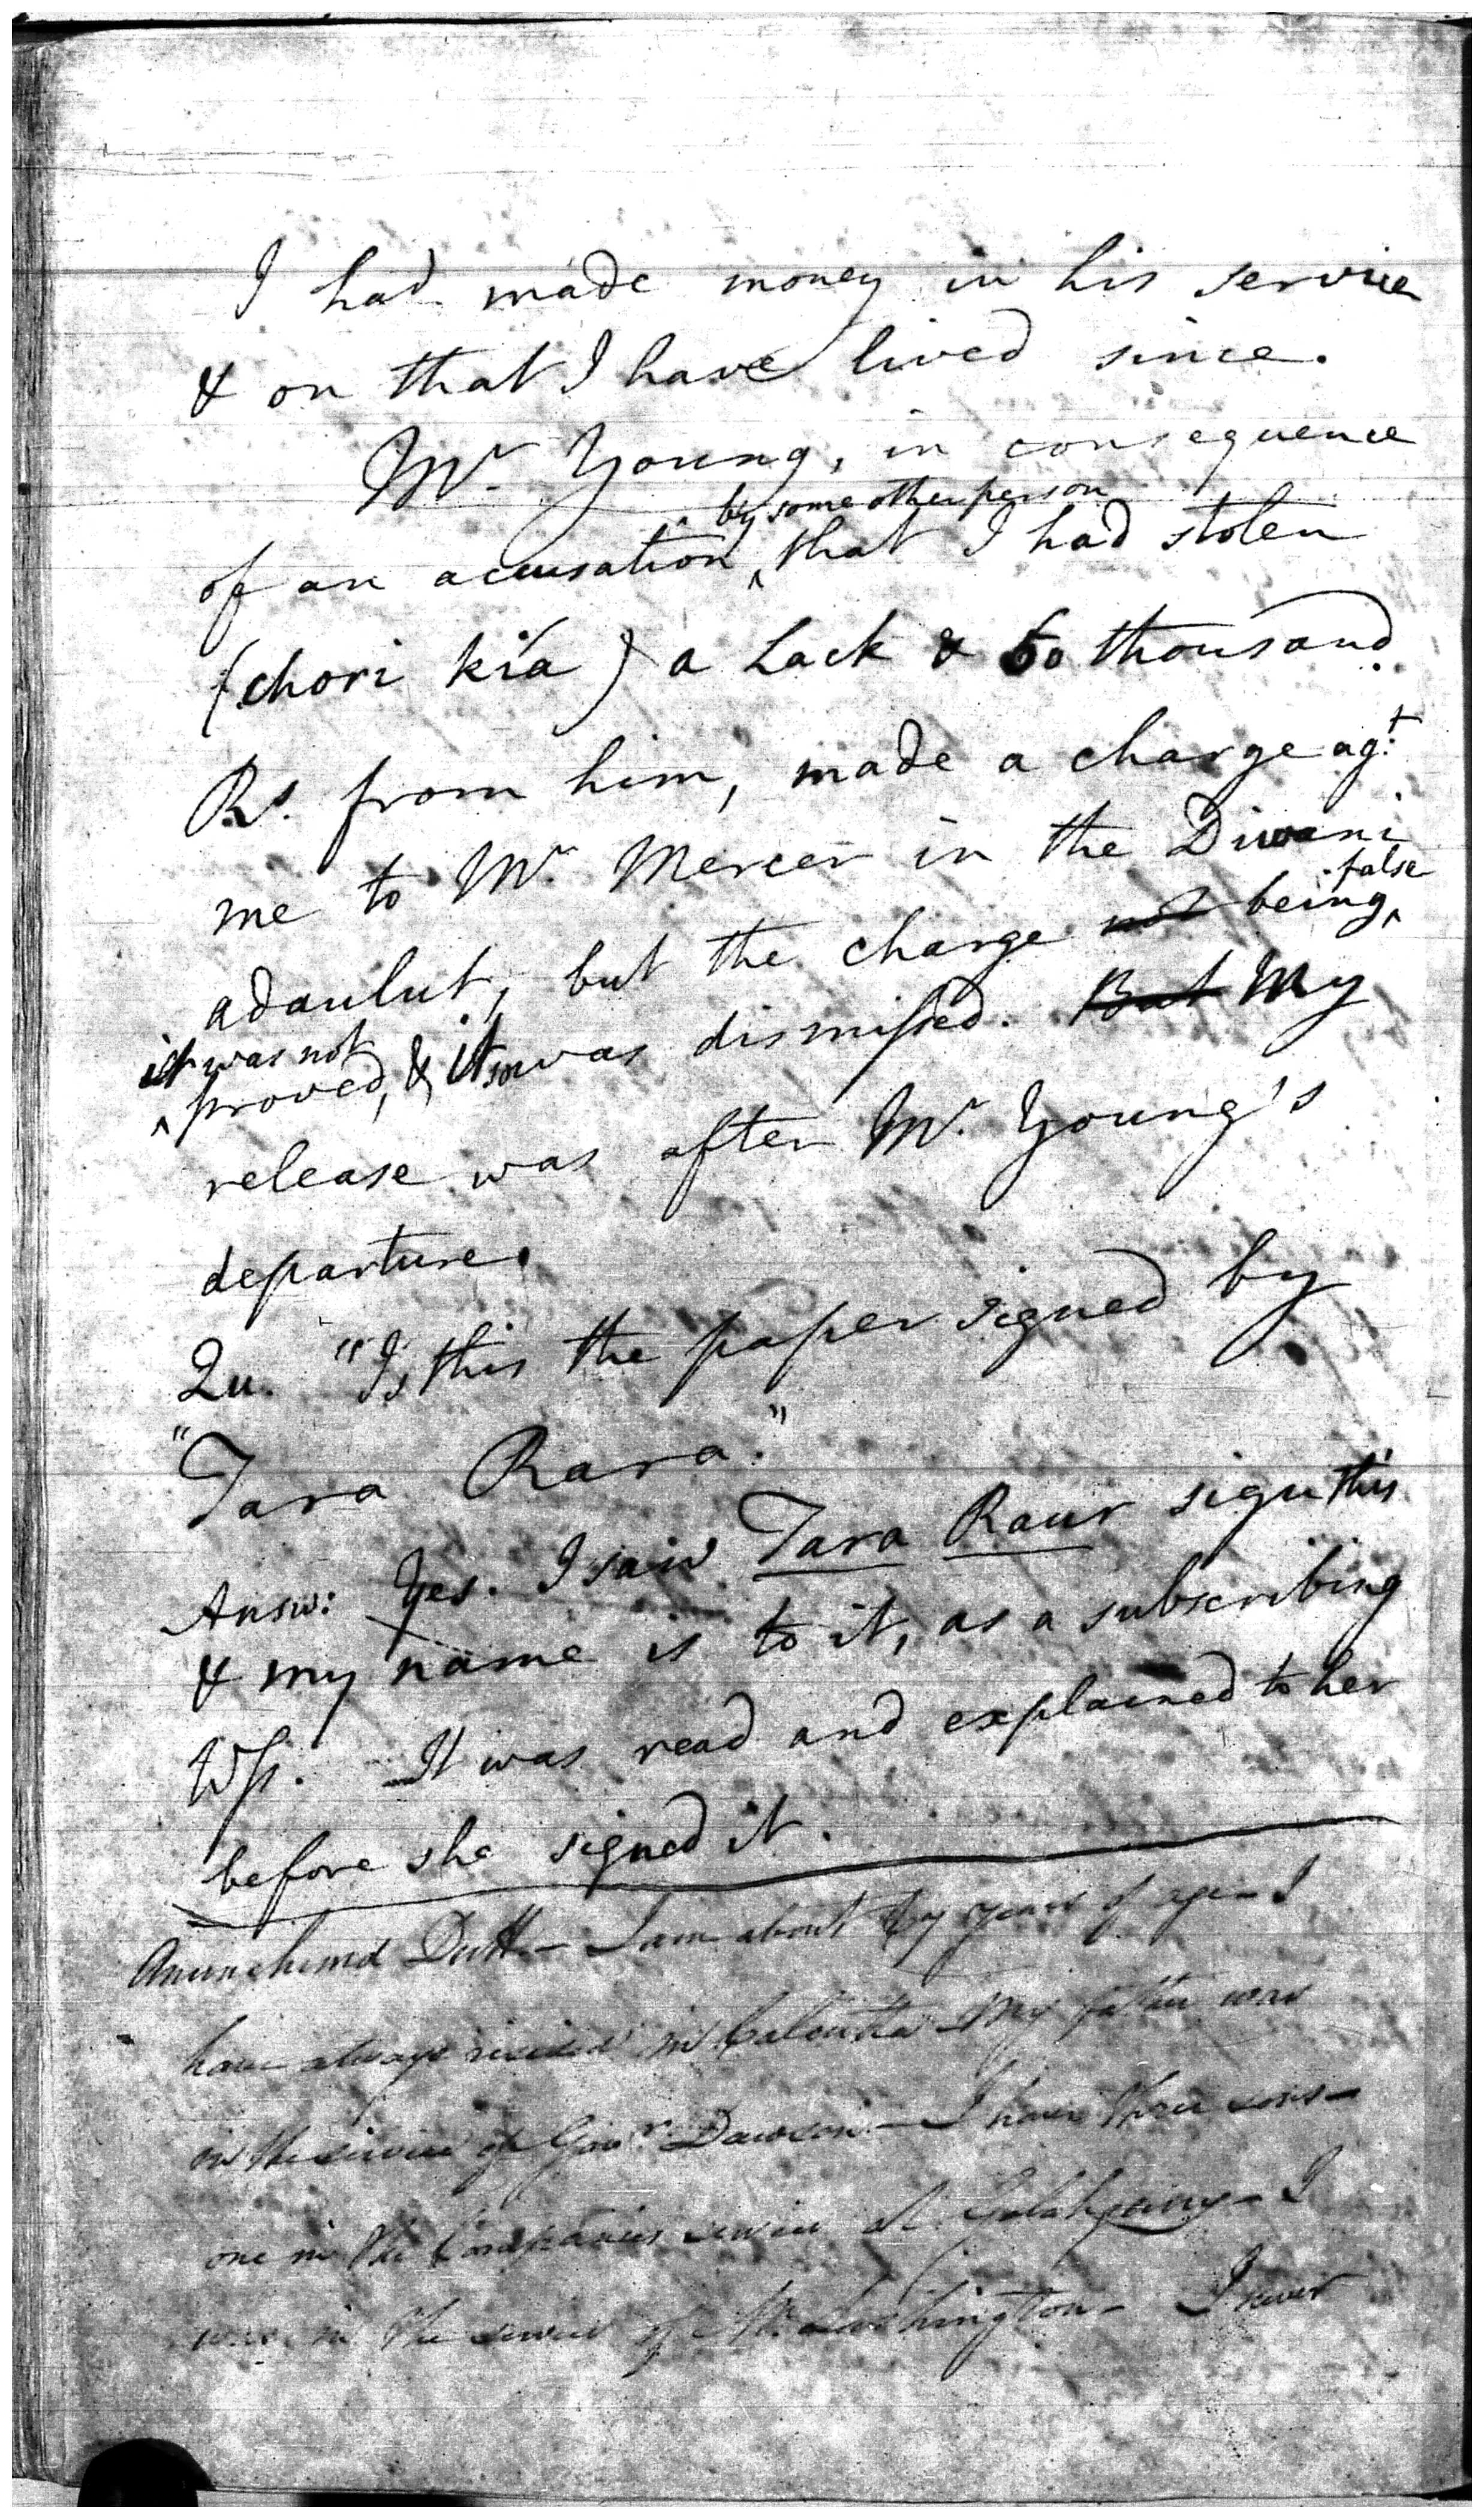 I had made money in his service
& on that I have lived since.
Mr. Young, in consequence
by some other person
of an accusation ^ that I had stolen
(chori kía) a Lack & 50 thousand
Rs. from him, made a charge agt.
me to Mr. Mercer in the Diwani
false
adaulut, but the charge not being ^
it was not
^ proved, & it was dismissed. But My
release was after Mr. Young's
departure.
Qu. "Is this the paper signed by
"Tara Rara."
Answ: Yes. I saw Tara Raur sign this
& my name is to it, as a subscribing
Wss. It was read and explained to her
before she signed it.
Dutt - I am about years of age - I
have always resided in Calcutta - My father was
in the service of Govr. Dawson - I have three sons -
one in the Companies service at - I
was in the service of Mr. Lushington - I never